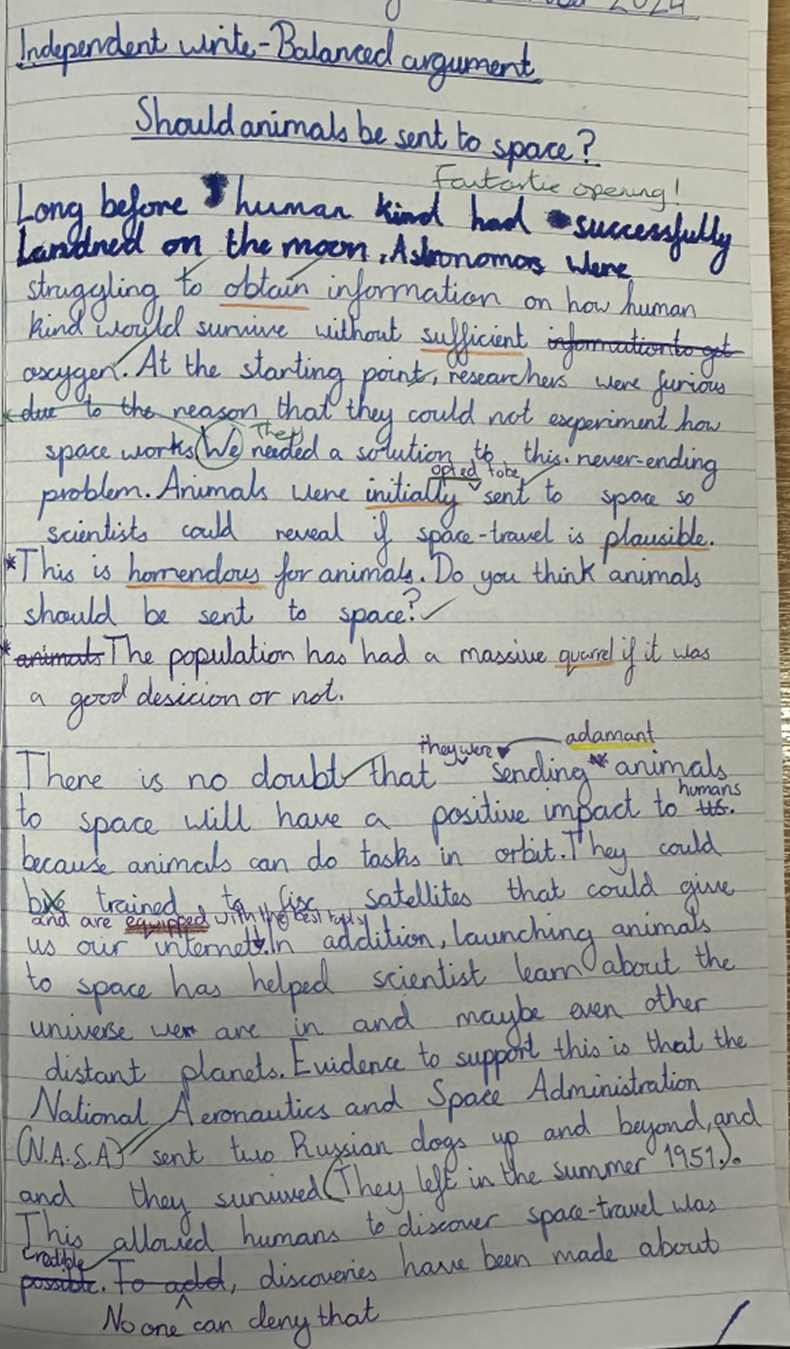 2024
Independent write-Balanced argument
Should animals be sent to space?
Fantastic opening!
Long before human kind had successfully
Landned on the moon, Astronomors were
struggling to obtain information on how human
kind would survive without sufficient information to get
oxcygen. At the starting point, researchers were furious
due to the reason that they could not experiment how
They
space works. We needed a solution to this never-ending
opted to be
problem. Animals were initially sent to space so
scientists could reveal if space-travel is plausible.
*This is horrendous for animals. Do you think animals
should be sent to space?
*animals The population has had a massive quarrel if it was
a good desicion or not.
they were adamant
There is no doubt that sending * animals
humans
to space will have a positive impact to us.
because animals can do tasks in orbit. They could
be trained to fix satellites that could give
and are equipped with the best tools
us our internet. In addition, launching animals
to space has helped scientist learn about the
universe we are in and maybe even other
distant planets. Evidence to support this is that the
National Aeronautics and Space Administration
(N.A.S.A) sent two Russian dogs up and beyond, and
and they survived (They left in the summer 1951.).
This allowed humans to discover space-travel was
credible
possible. To add, discoveries have been made about
No one can deny that